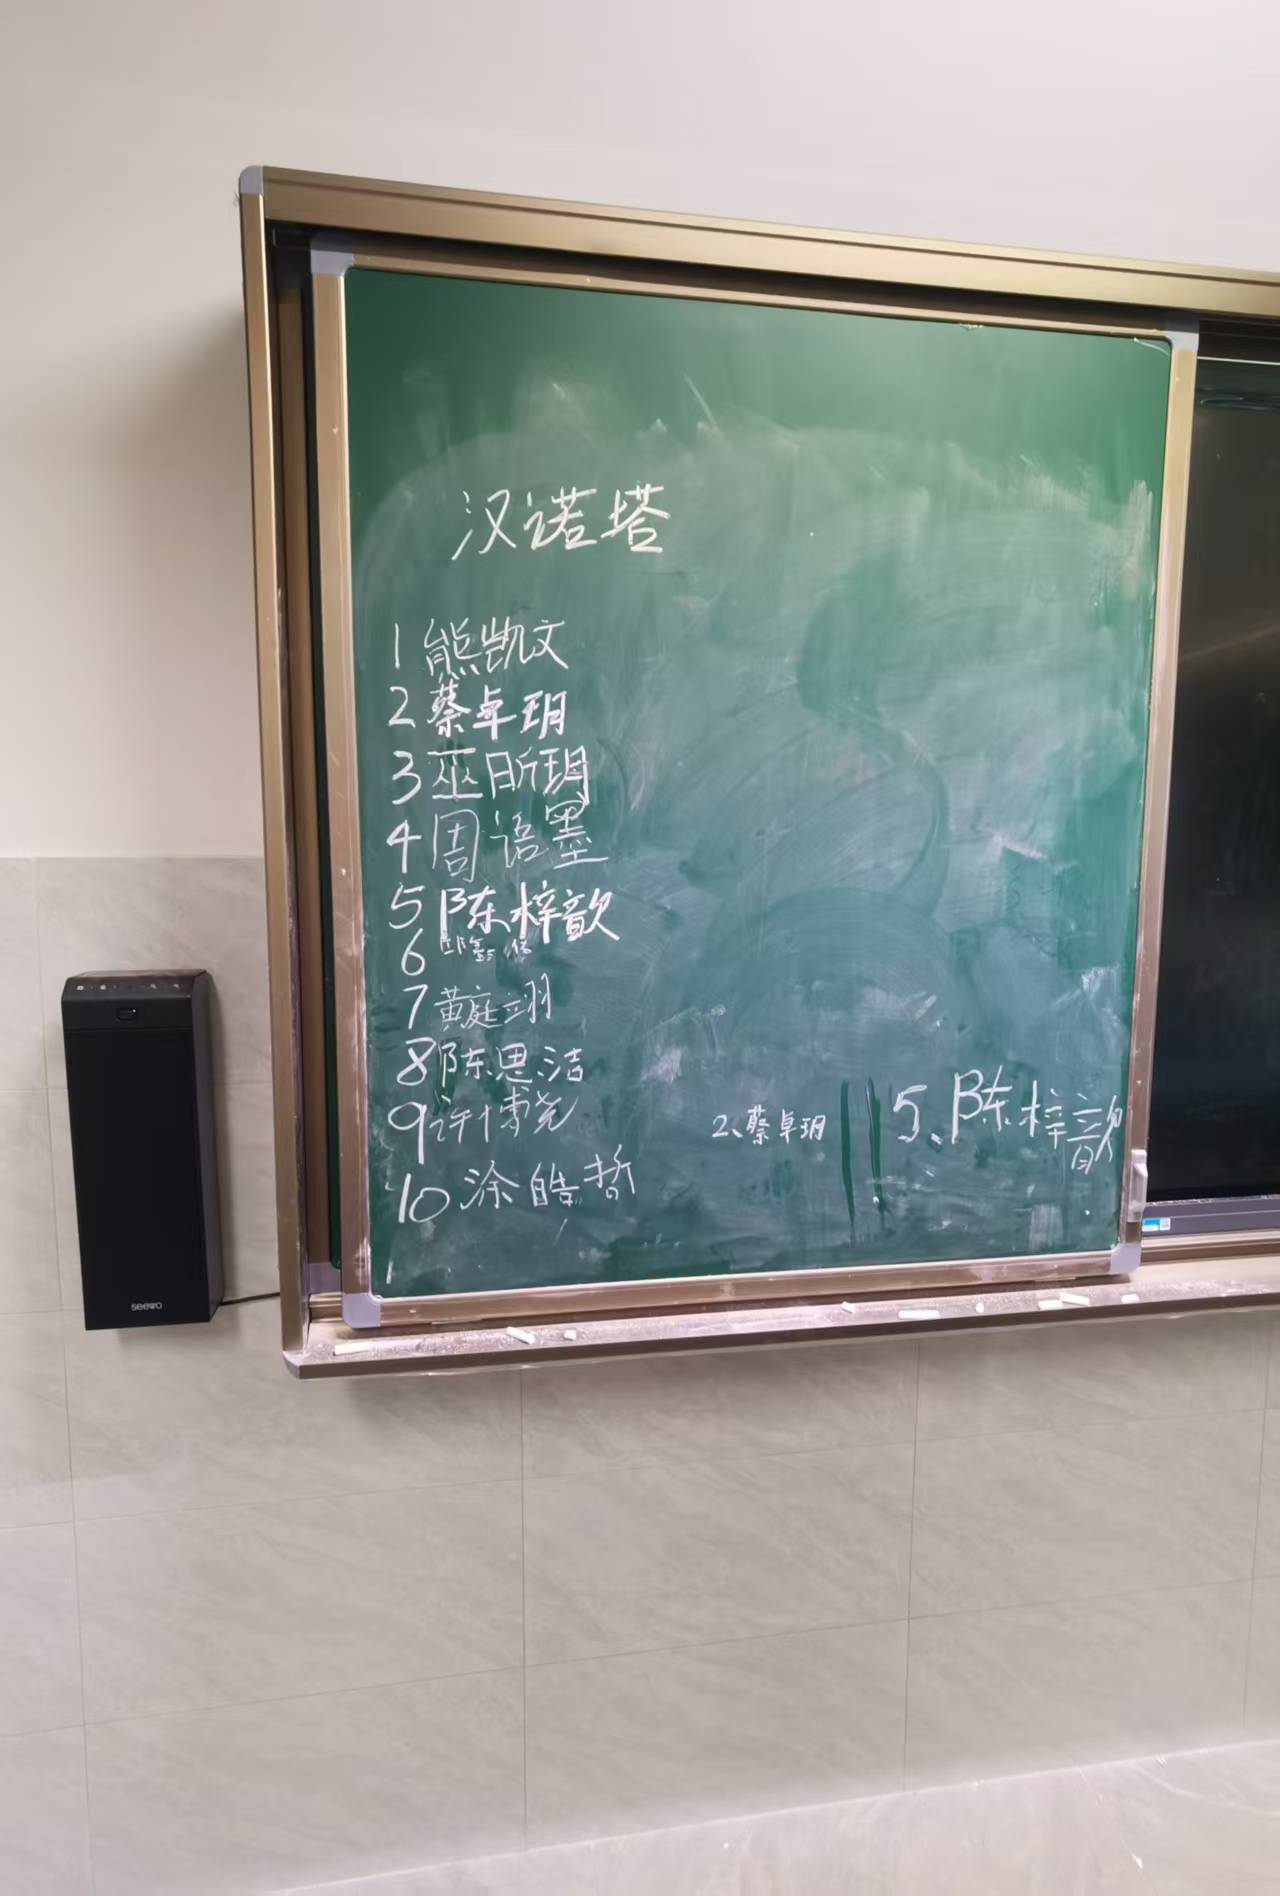 汉诺塔
1 熊凯文
2 蔡卓玥
3 巫昕玥
4 周语墨
5 陈梓歆
6
7 黄庭翊
8 陈思洁
9 许博尧
10 涂皓哲
2、蔡卓玥 5、陈梓歆
seewo